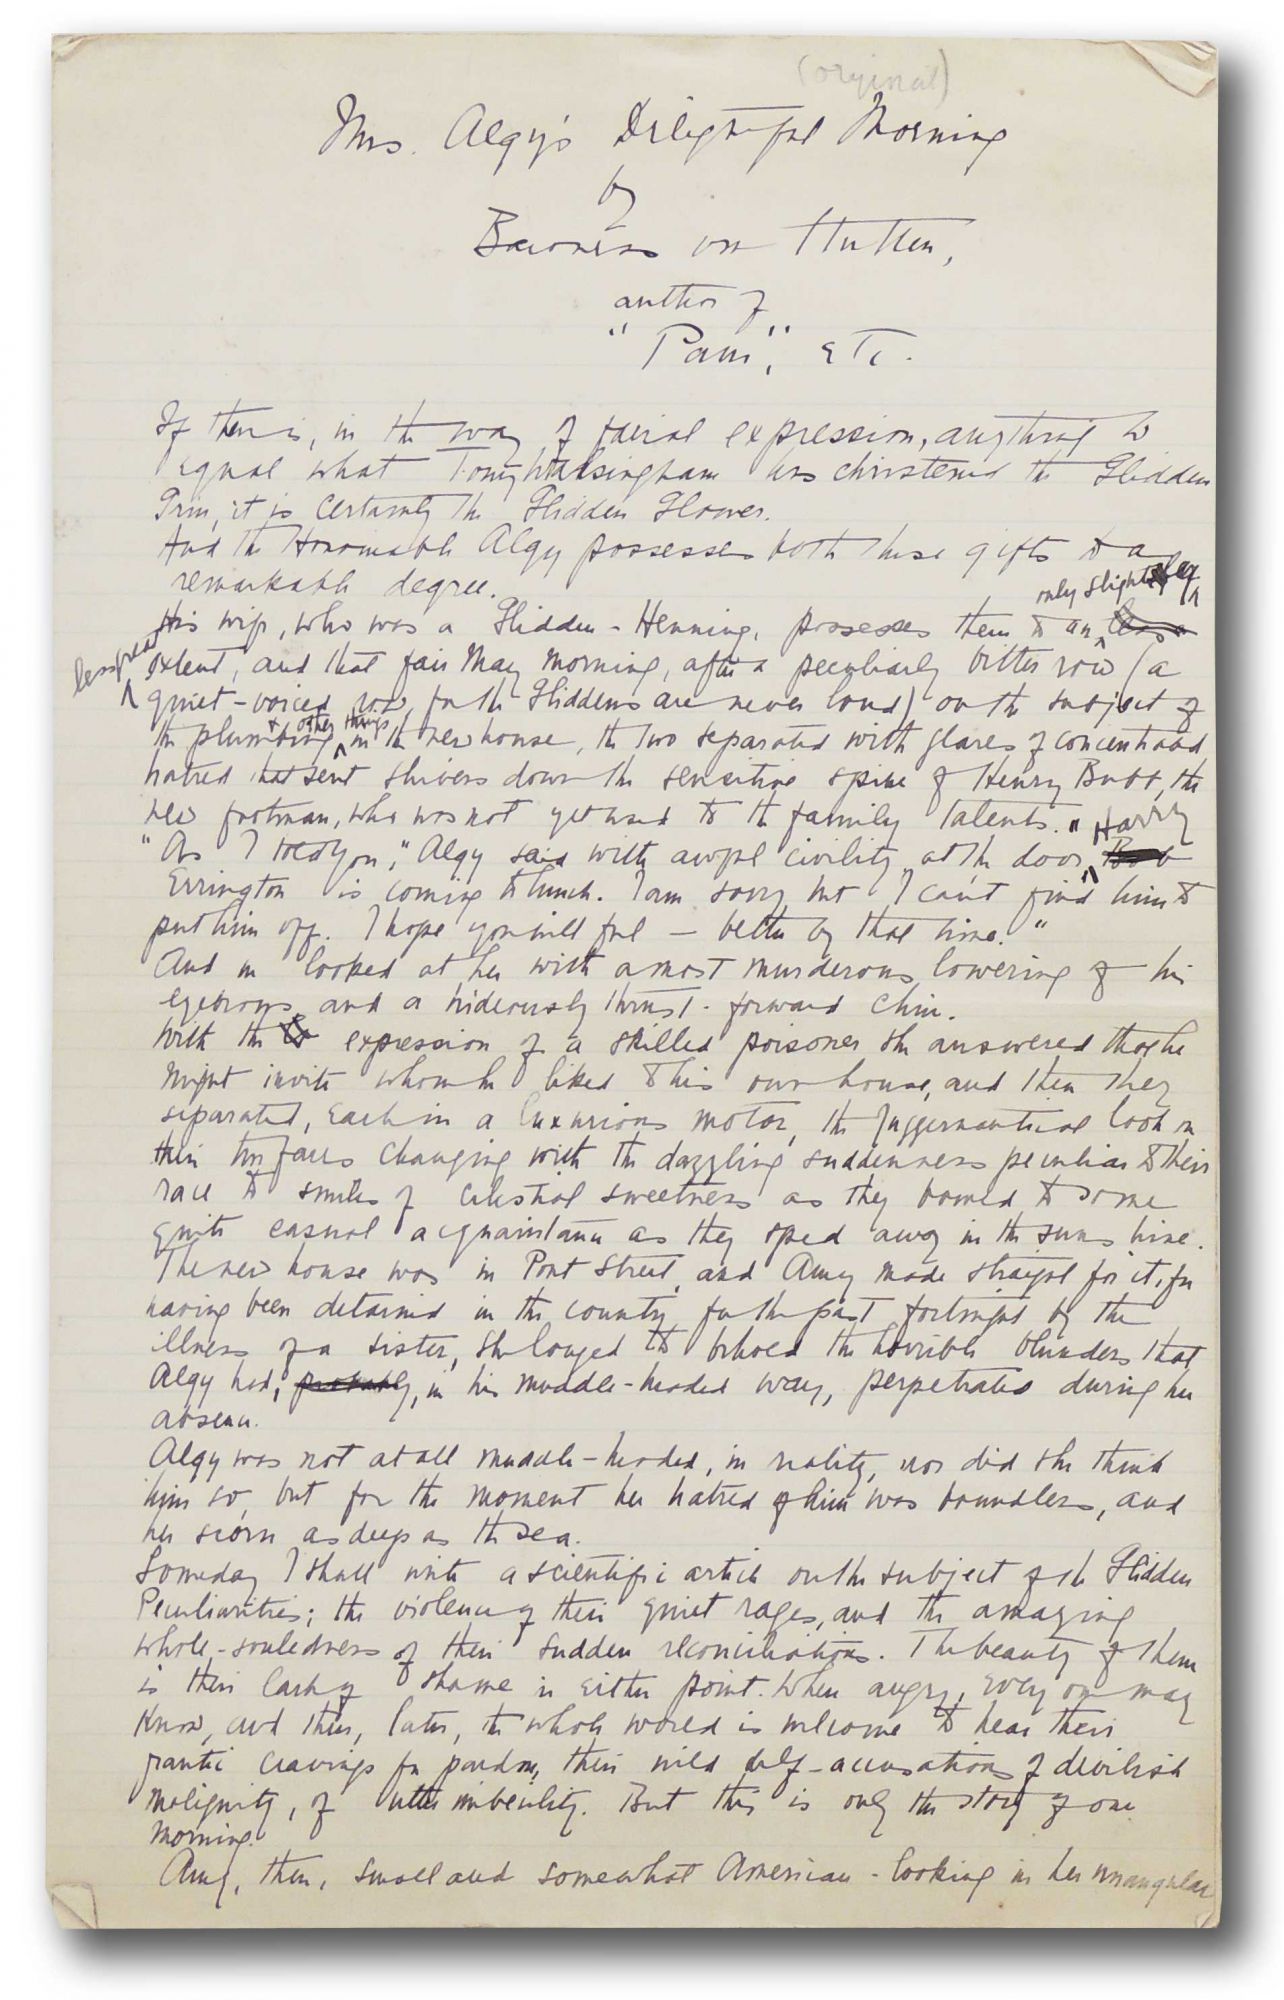 (original)
Mrs. Algy's Delightful Morning
by
Baroness von Hutten,
author of
"Pam", etc.
If there is, in the way of facial expression, anything to
equal what Tony Walsingham has christened the Glidden
Grin, it is certainly the Glidden Glower.
And the Honourable Algy possesses both these gifts to a
remarkable degree.
only slightly
His wife, who was a Glidden-Henning, possesses them to an less
less great
extent, and that fair May morning, after a peculiarly bitter row (a
quiet-voiced row, for the Gliddens are never loud) on the subject of
+ other things
the plumbing in the new house, the two separated with glares of concentrated
hatred that sent shivers down the sensitive spine of Henry Bubb, the
new footman, who was not yet used to the family talents.
"As I told you," Algy said with awful civility, at the door, "Harry
Errington is coming to lunch. I am sorry but I can't find him to
put him off. I hope you will feel — better by that time."
And he looked at her with a most murderous lowering of his
eyebrows and a hideously thrust-forward chin.
With the expression of a skilled poisoner she answered that he
might invite whom he liked to his own house, and then they
separated, each in a luxurious motor, the Juggernautical look on
their two faces changing with the dazzling suddenness peculiar to their
race to smiles of celestial sweetness as they bowed to some
quite casual acquaintance as they sped away in the sunshine.
The new house was in Pont Street, and Amy made straight for it, for
having been detained in the country for the past fortnight by the
illness of a sister, she longed to behold the horrible blunders that
Algy had, probably, in his muddle-headed way, perpetrated during her
absence.
Algy was not at all muddle-headed, in reality, nor did she think
him so, but for the moment her hatred of him was boundless, and
her scorn as deep as the sea.
Someday I shall write a scientific article on the subject of the Glidden
Peculiarities; the violence of their quiet rages, and the amazing
whole-souledness of their sudden reconciliations. The beauty of them
is their lack of shame in either point. When angry, every one may
know, and then, later, the whole world is welcome to hear their
frantic cravings for pardon, their wild self-accusations of devilish
malignity, of utter imbecility. But this is only the story of one
morning.
Amy, then, small and somewhat American-looking in her unangular